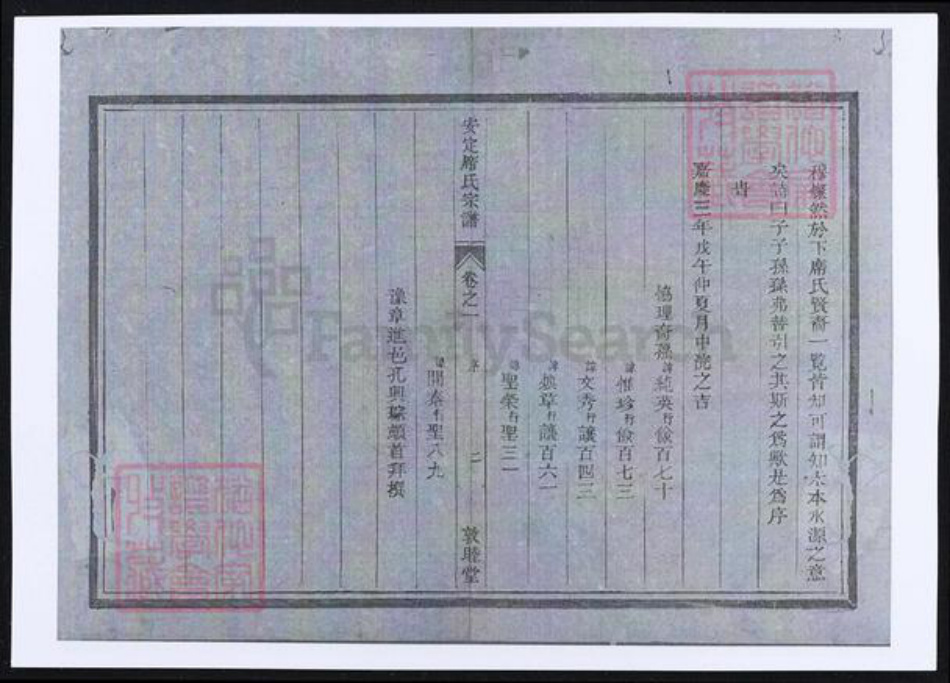 穆燦然於下席氏賢裔一覽皆知可謂知木本水源之意
矣詩曰子子孫孫弗替引之其斯之爲歟是爲序
時
嘉慶三年戊午仲夏月中浣之吉
協理裔孫諱純英行儉百七十
諱惟珍行儉百七三
諱文秀行讓百四三
諱煥章行讓百六一
諱聖榮行聖三一
安定席氏宗譜 卷之一 序 二 敦睦堂
諱開泰行聖八九
豫章進邑孔興 頓首拜撰
FamilySearch